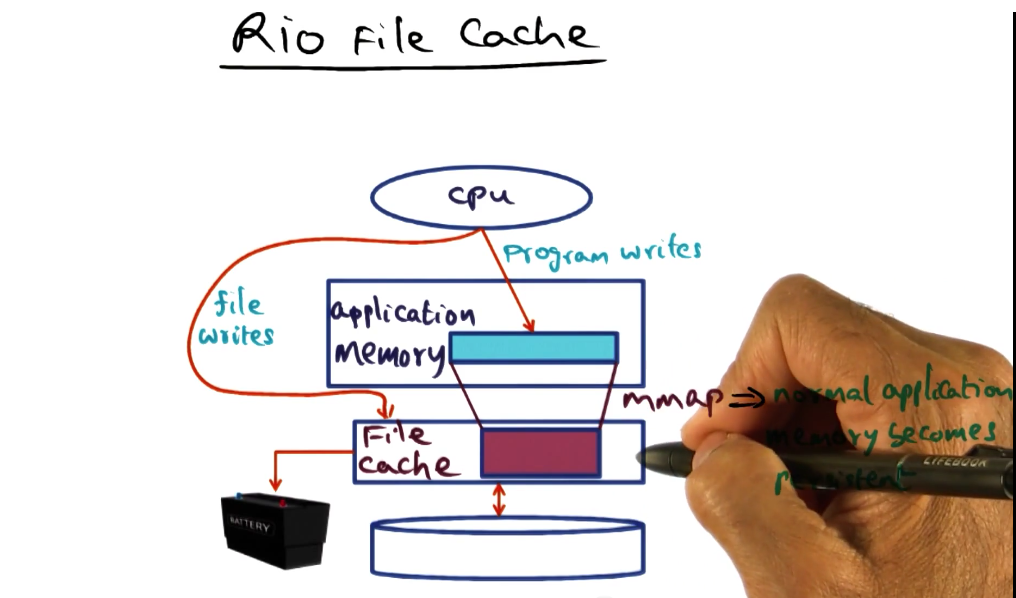 Rio File Cache
CPU
Program writes
file
writes
application
memory
mmap ⇒ normal application
memory becomes
persistent
File
cache
BATTERY
LIFEBOOK